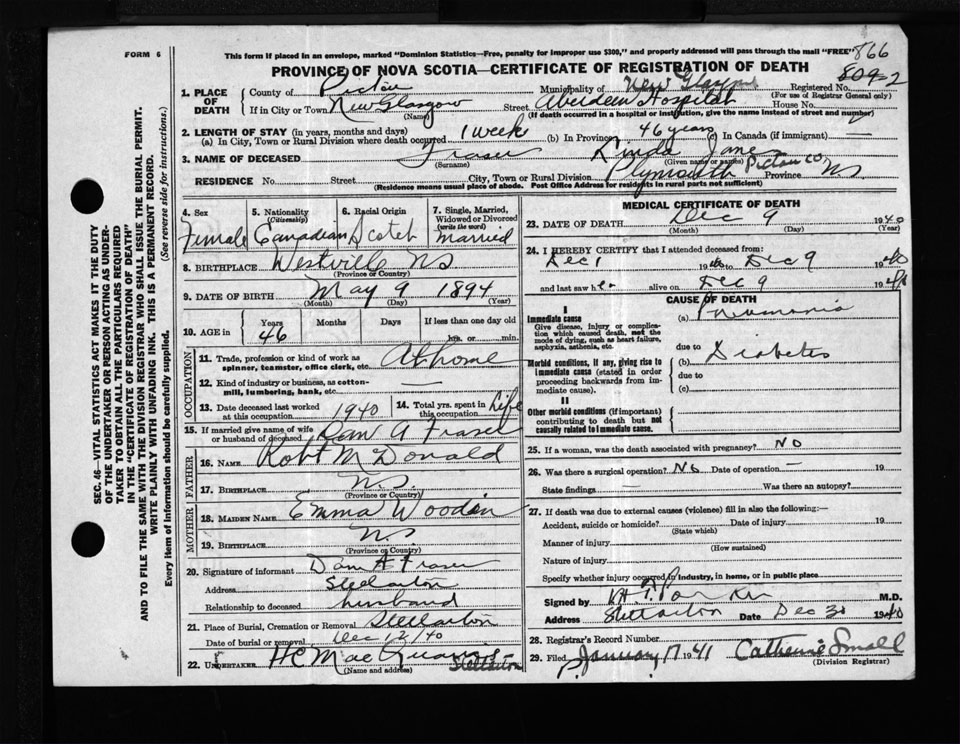 FORM 6
This form if placed in an envelope, marked "Dominion Statistics—Free, penalty for improper use $300," and properly addressed will pass through the mail "FREE" 866
PROVINCE OF NOVA SCOTIA—CERTIFICATE OF REGISTRATION OF DEATH
809-2
1. PLACE OF DEATH
County of Pictou Municipality of New Glasgow Registered No.
(For use of Registrar General only)
If in City or Town New Glasgow Street Aberdeen Hospital House No.
(Name) (If death occurred in a hospital or institution, give the name instead of street and number)
2. LENGTH OF STAY (in years, months and days)
(a) In City, Town or Rural Division where death occurred 1 week (b) In Province 46 years (c) In Canada (if immigrant) —
3. NAME OF DECEASED Fraser Linda Jane
(Surname) (Given name or names)
RESIDENCE No. Street City, Town or Rural Division Plymouth Pictou Co Province NS
(Residence means usual place of abode. Post Office Address for residents in rural parts not sufficient)
4. Sex Female
5. Nationality (Citizenship) Canadian
6. Racial Origin Scotch
7. Single, Married, Widowed or Divorced (write the word) Married
8. BIRTHPLACE Westville NS
(Province or Country)
9. DATE OF BIRTH May 9 1894
(Month) (Day) (Year)
10. AGE in Years 46 Months Days If less than one day old hrs. or min.
OCCUPATION
11. Trade, profession or kind of work as spinner, teamster, office clerk, etc. At home
12. Kind of industry or business, as cotton-mill, lumbering, bank, etc. —
13. Date deceased last worked at this occupation 1940
14. Total yrs. spent in this occupation Life
15. If married give name of wife or husband of deceased Dan A Fraser
FATHER
16. NAME Robt McDonald
17. BIRTHPLACE N.S.
(Province or Country)
MOTHER
18. MAIDEN NAME Emma Wooden
19. BIRTHPLACE NS
(Province or Country)
20. Signature of informant Dan A Fraser
Address Stellarton
Relationship to deceased husband
21. Place of Burial, Cremation or Removal Stellarton
Date of burial or removal Dec 12/40
22. UNDERTAKER H C Mac Stellarton
(Name and address)
MEDICAL CERTIFICATE OF DEATH
23. DATE OF DEATH Dec 9 1940
(Month) (Day) (Year)
24. I HEREBY CERTIFY that I attended deceased from:
Dec 1 1940 to Dec 9 1940
and last saw her alive on Dec 9 1940
CAUSE OF DEATH
I
Immediate cause
Give disease, injury or complication which caused death, not the mode of dying, such as heart failure, asphyxia, asthenia, etc.
(a) Pneumonia
due to
Morbid conditions, if any, giving rise to immediate cause (stated in order proceeding backwards from immediate cause).
(b) Diabetes
due to
(c)
II
Other morbid conditions (if important) contributing to death but not causally related to immediate cause.
25. If a woman, was the death associated with pregnancy? No
26. Was there a surgical operation? No Date of operation — 19
State findings — Was there an autopsy?
27. If death was due to external causes (violence) fill in also the following:—
Accident, suicide or homicide? Date of injury 19
(State which)
Manner of injury
(How sustained)
Nature of injury
Specify whether injury occurred in industry, in home, or in public place
Signed by M.D.
Address Stellarton Date Dec 30 1940
28. Registrar's Record Number
29. Filed January 17 1941 Catherine Small
(Division Registrar)
SEC. 46—VITAL STATISTICS ACT MAKES IT THE DUTY
OF THE UNDERTAKER OR PERSON ACTING AS UNDER-
TAKER TO OBTAIN ALL THE PARTICULARS REQUIRED
IN THE "CERTIFICATE OF REGISTRATION OF DEATH"
AND TO FILE THE SAME WITH THE DIVISION REGISTRAR WHO SHALL ISSUE THE BURIAL PERMIT.
WRITE PLAINLY WITH UNFADING INK. THIS IS A PERMANENT RECORD.
Every item of information should be carefully supplied. (See reverse side for instructions.)